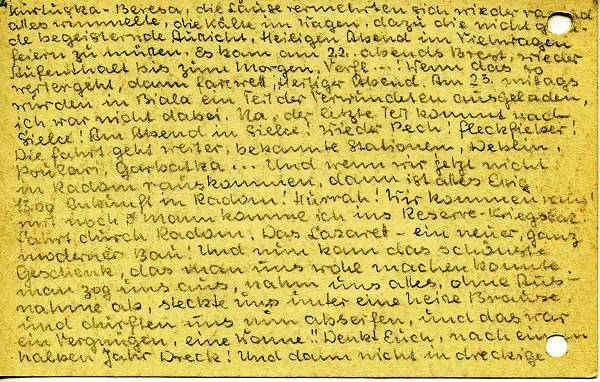 Kartuska-Beresa, die Läuse vermehrten sich wieder rasend
alles wimmelte, die Kälte im Wagen, dazu die nicht gera-
de begeisternde Aussicht, Heiligen Abend im Viehwagen
feiern zu müssen. Es kam am 22. abends Brest, wieder
Aufenthalt bis zum Morgen. Verfl...! Wenn das so
weitergeht, dann farewell, Heiliger Abend. Am 23. mittags
wurden in Biala ein Teil der Verwundeten ausgeladen,
ich war nicht dabei. Na, der letzte Teil kommt nach
Sielce! Am Abend in Sielce! Wieder Pech! Fleckfieber!
Die Fahrt geht weiter, bekannte Stationen, Deblin,
Garbatka... Und wenn wir jetzt nicht
in Radom rauskommen, dann ist alles
Ankunft in Radom! Hurrah! Wir kommen raus!
mit noch 7 Mann komme ich ins Reserve-Kriegslaz.
Fahrt durch Radom. Das Lazarett - ein neuer, ganz
moderner Bau! Und nun kam das schönste
Geschenk, das man uns wohl machen konnte.
man zog uns aus, nahm uns alles, ohne Aus-
nahme ab, steckte uns unter eine heise Brause,
und durften uns nun abseifen, und das war
ein Vergnügen, eine Wonne!! Denkt Euch, nach einem
halben Jahr Dreck! Und dann nicht in dreckige